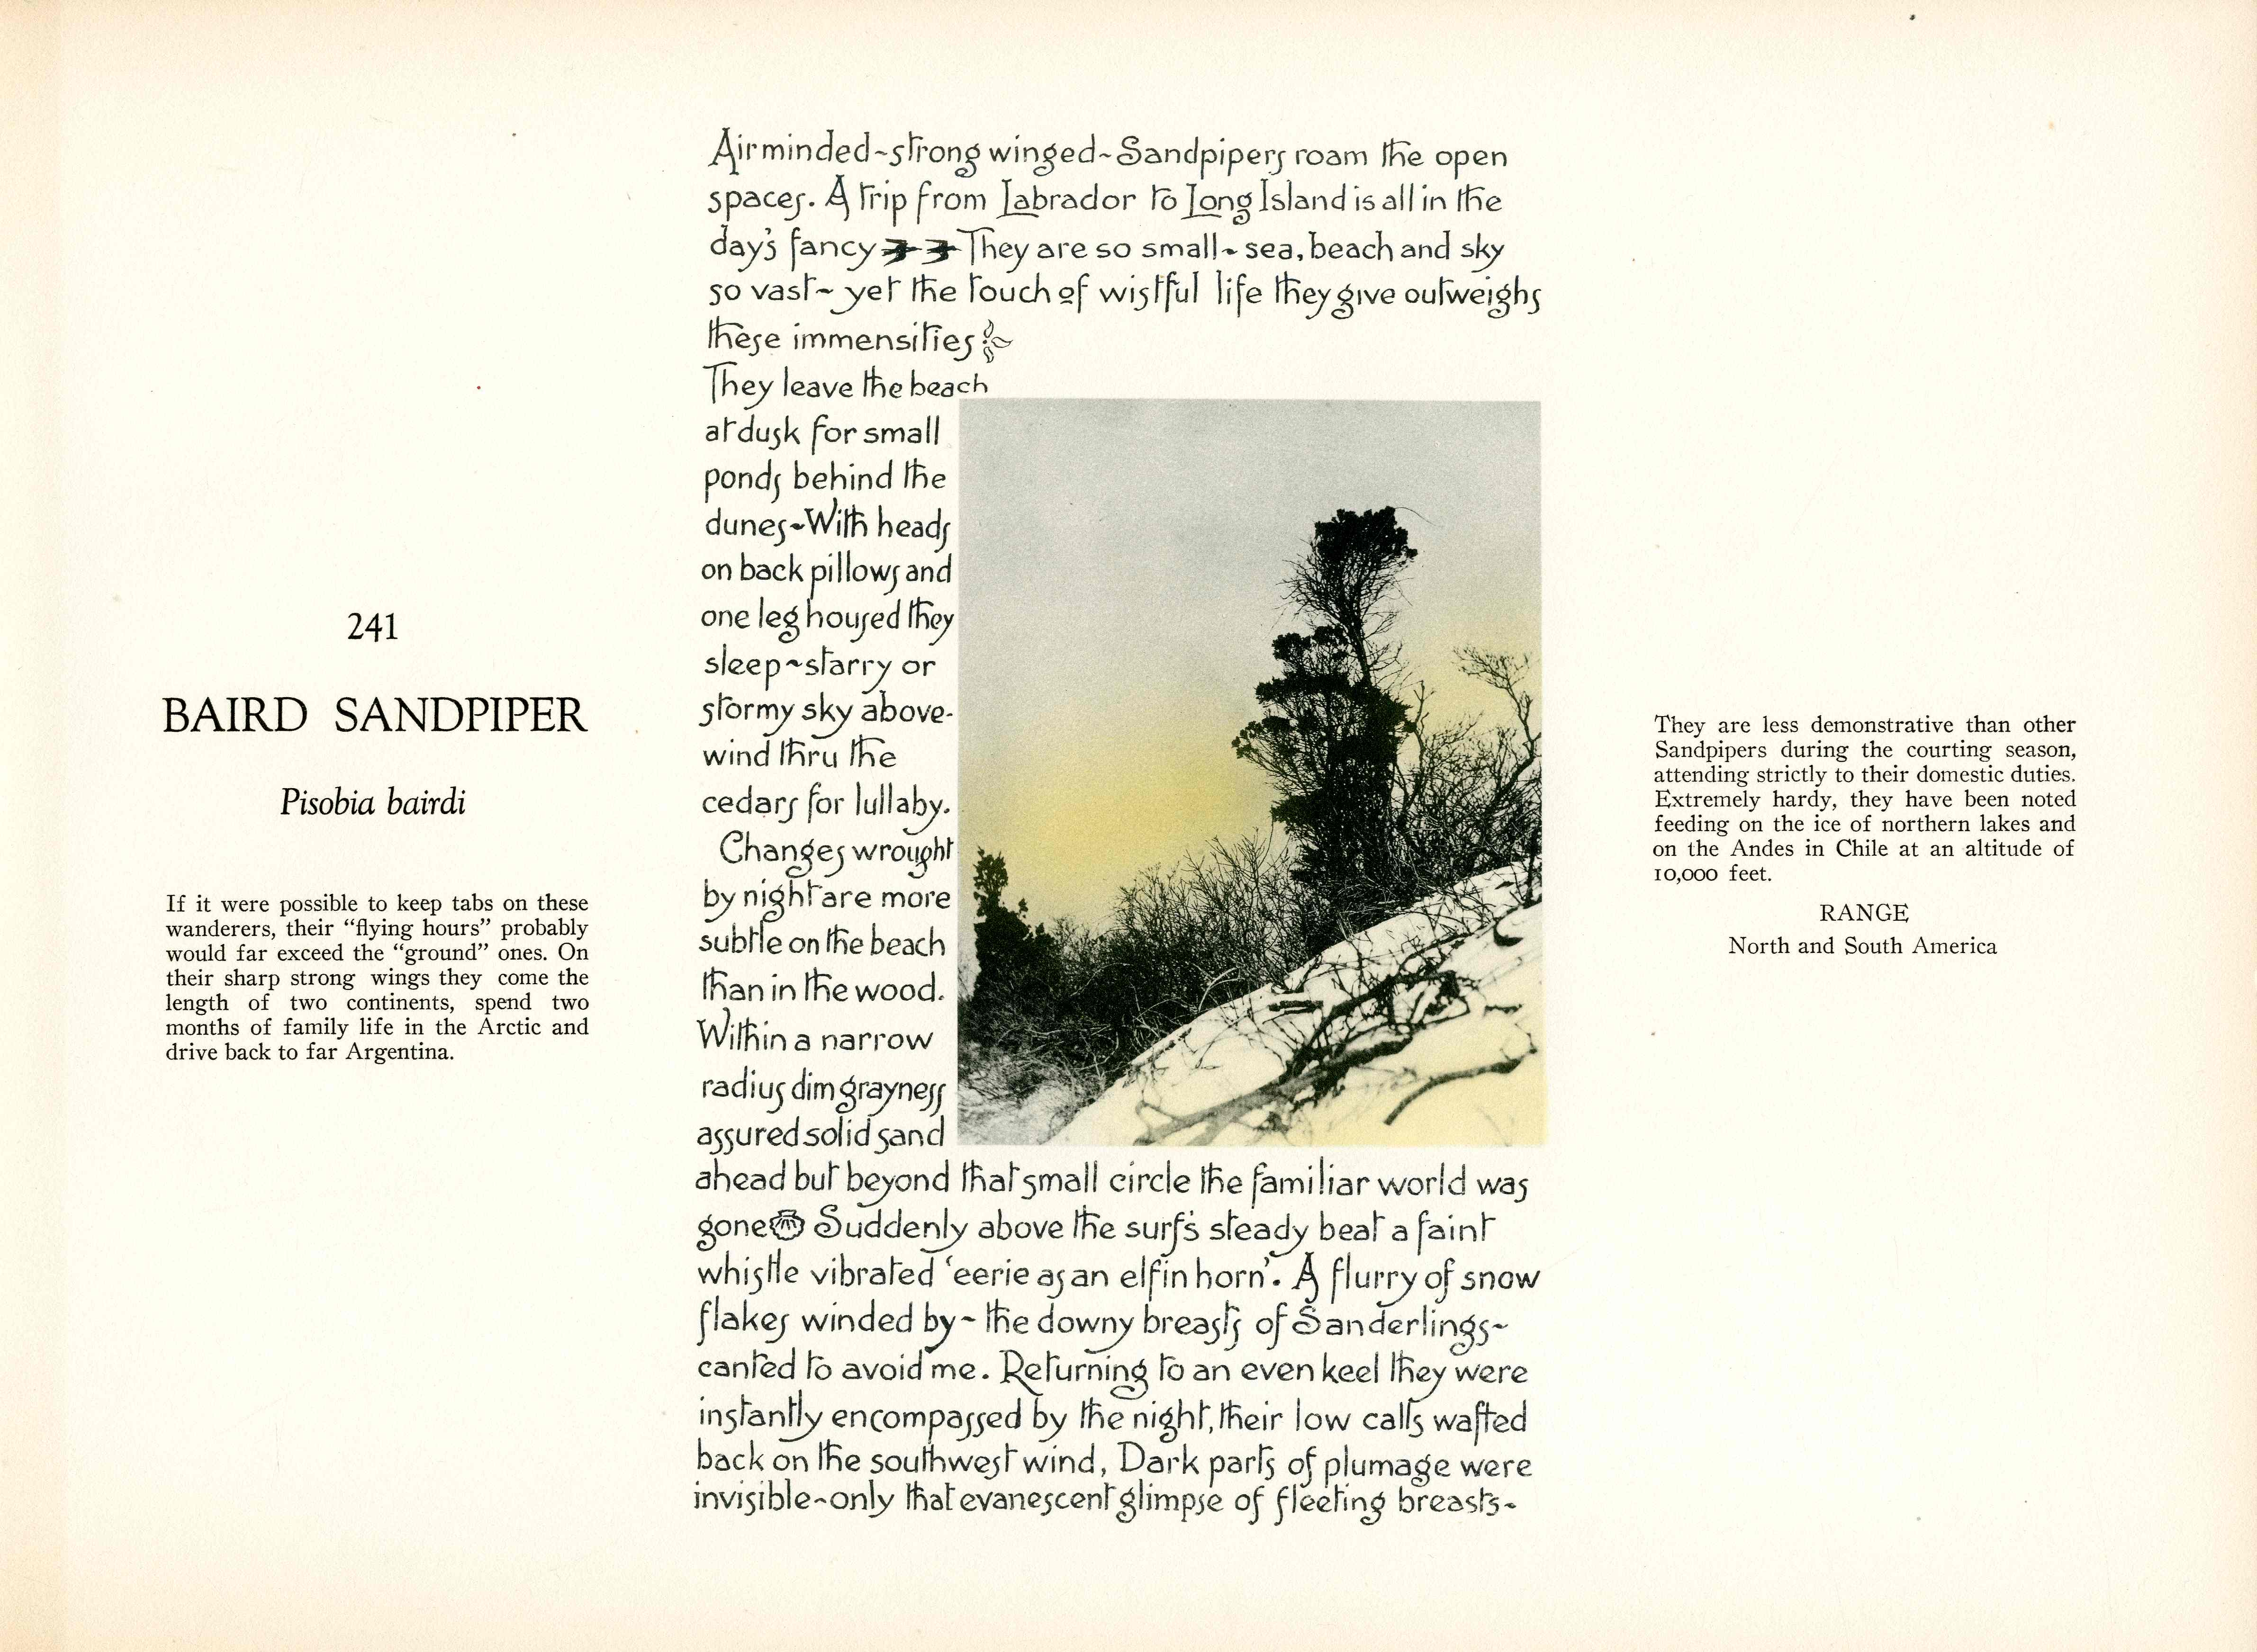 241
BAIRD SANDPIPER
Pisobia bairdi
If it were possible to keep tabs on these
wanderers, their “flying hours” probably
would far exceed the “ground” ones. On
their sharp strong wings they come the
length of two continents, spend two
months of family life in the Arctic and
drive back to far Argentina.
Airminded~strong winged~Sandpipers roam the open
spaces. A trip from Labrador to Long Island is all in the
day's fancy They are so small~ sea, beach and sky
so vast~ yet the touch of wistful life they give outweighs
these immensities
They leave the beach
at dusk for small
ponds behind the
dunes~With heads
on back pillows and
one leg housed they
sleep~starry or
stormy sky above-
wind thru the
cedars for lullaby.
Changes wrought
by night are more
subtle on the beach
than in the wood.
Within a narrow
radius dim grayness
assured solid sand
ahead but beyond that small circle the familiar world was
gone Suddenly above the surf's steady beat a faint
whistle vibrated ‘eerie as an elfin horn’. A flurry of snow
flakes winded by~ the downy breasts of Sanderlings~
canted to avoid me. Returning to an even keel they were
instantly encompassed by the night, their low calls wafted
back on the southwest wind, Dark parts of plumage were
invisible~only that evanescent glimpse of fleeting breasts~
They are less demonstrative than other
Sandpipers during the courting season,
attending strictly to their domestic duties.
Extremely hardy, they have been noted
feeding on the ice of northern lakes and
on the Andes in Chile at an altitude of
10,000 feet.
RANGE
North and South America